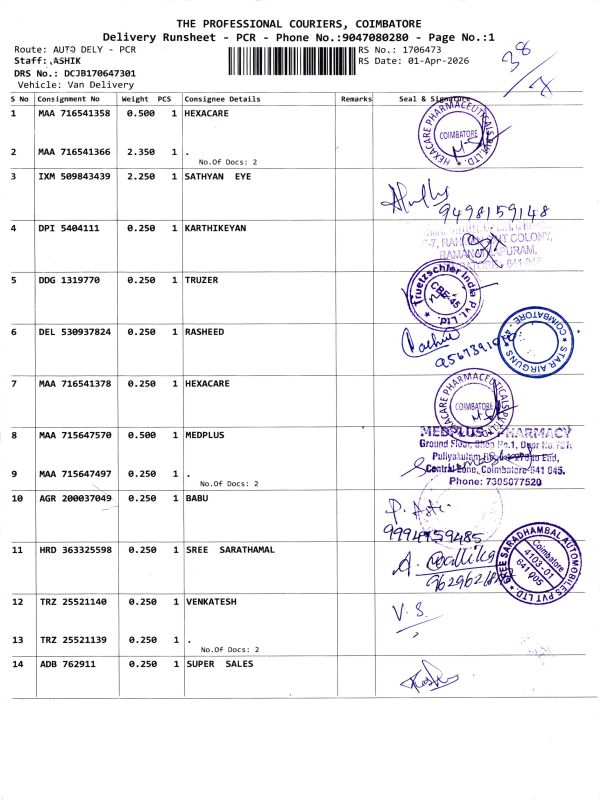 THE PROFESSIONAL COURIERS, COIMBATORE
Delivery Runsheet - PCR - Phone No.:9047080280 - Page No.:1
Route: AUTO DELY - PCR
Staff: ASHIK
DRS No.: DCJB170647301
Vehicle: Van Delivery
RS No.: 1706473
RS Date: 01-Apr-2026
38
S No Consignment No Weight PCS Consignee Details Remarks Seal & Signature
1 MAA 716541358 0.500 1 HEXACARE
HEXACARE PHARMACEUTICALS PVT. LTD. COIMBATORE
2 MAA 716541366 2.350 1 .
No.Of Docs: 2
3 IXM 509843439 2.250 1 SATHYAN EYE
9498159148
4 DPI 5404111 0.250 1 KARTHIKEYAN
COLONY,
5 DDG 1319770 0.250 1 TRUZER
Truetzschler India Pvt. Ltd. CBE-45
6 DEL 530937824 0.250 1 RASHEED
STAR AIRGUNS COIMBATORE
7 MAA 716541378 0.250 1 HEXACARE
HEXACARE PHARMACEUTICALS COIMBATORE
8 MAA 715647570 0.500 1 MEDPLUS
MEDPLUS PHARMACY
Ground Floor, Shop No.1, Door No.
Puliyakulam End,
Central Zone, Coimbatore-641 045.
Phone: 7305077520
9 MAA 715647497 0.250 1 .
No.Of Docs: 2
10 AGR 200037049 0.250 1 BABU
9994759485
11 HRD 363325598 0.250 1 SREE SARATHAMAL
SREE SARADHAMBAL AUTOMOBILES PVT LTD Coimbatore 4103-01 641 005
12 TRZ 25521140 0.250 1 VENKATESH
V. S.
13 TRZ 25521139 0.250 1 .
No.Of Docs: 2
14 ADB 762911 0.250 1 SUPER SALES